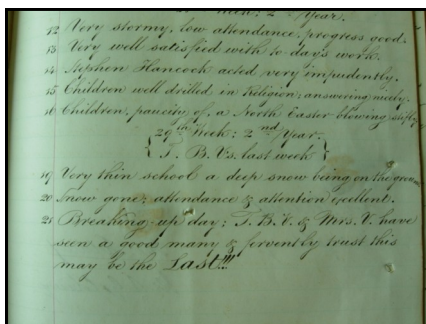 Week: 2nd Year.
12 Very stormy, low attendance, progress good.
13 Very well satisfied with to day's work.
14 Stephen Hancock acted very impudently.
15 Children well drilled in Religion, answering nicely.
16 Children, paucity of, a North Easter blowing stiffly
29th Week: 2nd Year.
{ T. B. V's. last week }
19 Very thin school a deep snow being on the ground
20 Snow gone; attendance & attention excellent.
21 Breaking up day; T. B. V. & Mrs. V. have
seen a good many & fervently trust this
may be the Last!!!